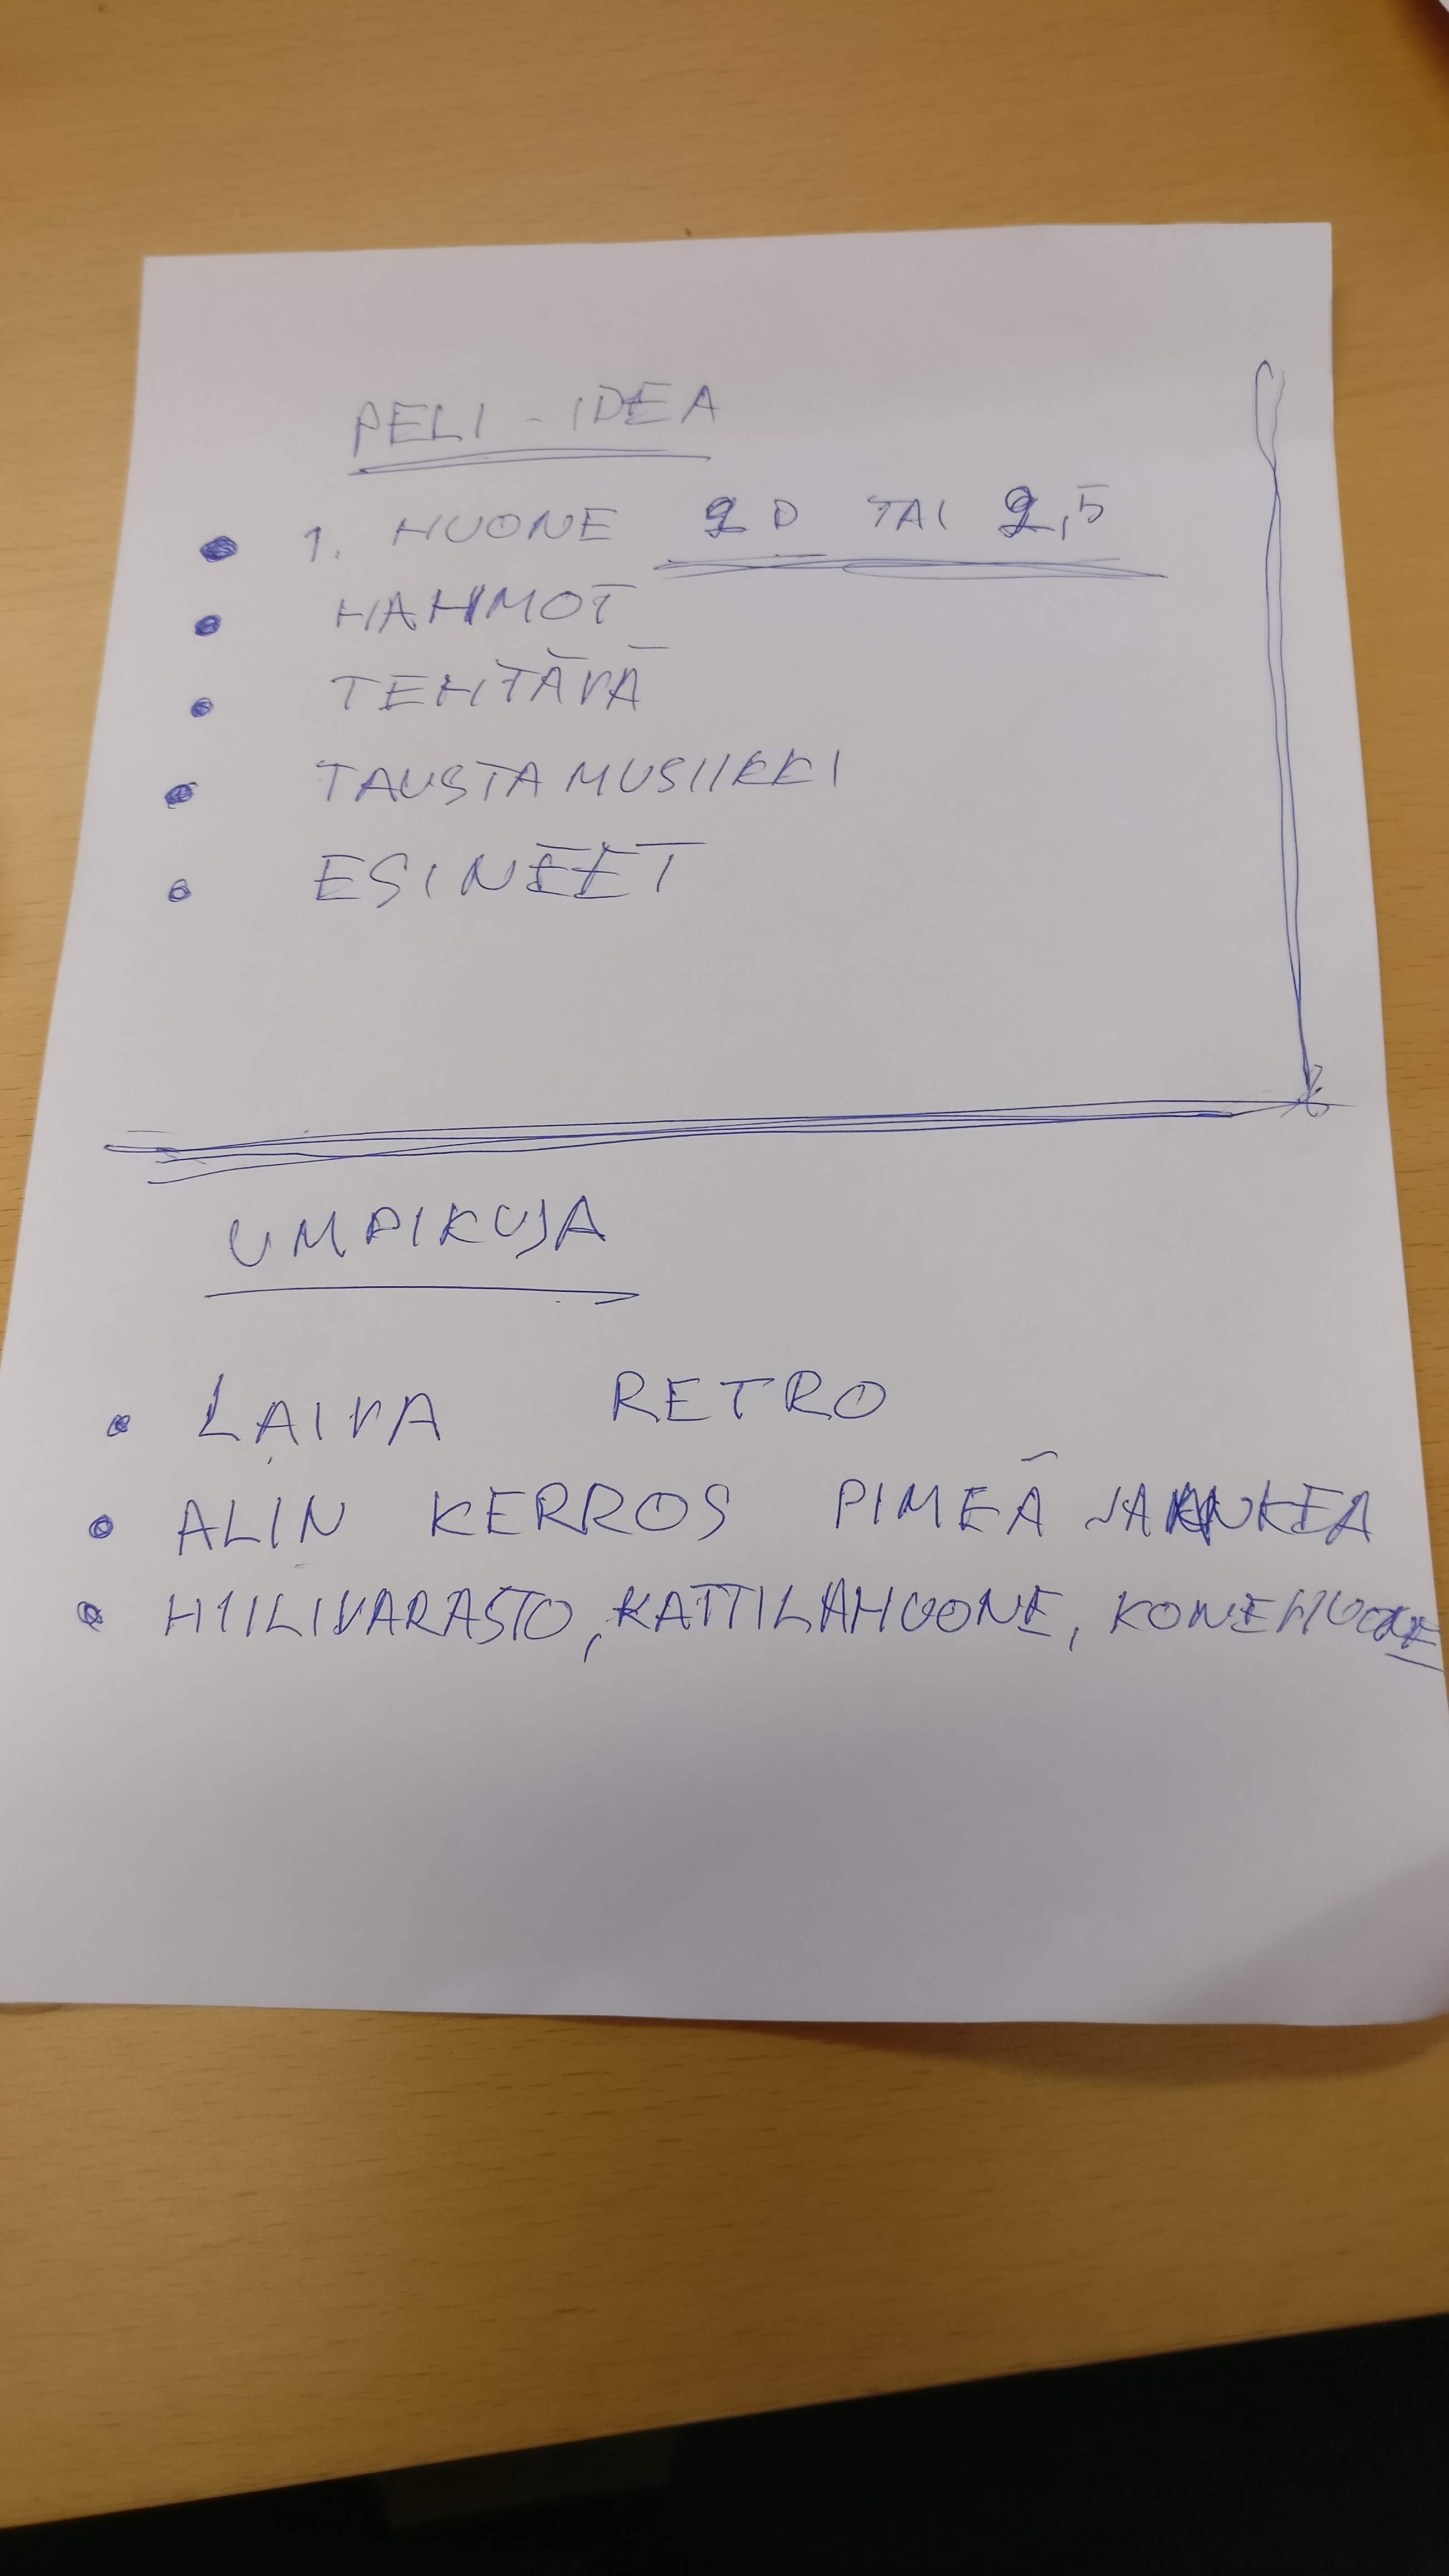 PELI-IDEA
• 1. HUONE 2D TAI 2,5
• HAHMOT
• TEHTÄVÄ
• TAUSTAMUSIIKKI
• ESINEET
UMPIKUJA
• LAIVA RETRO
• ALIN KERROS PIMEÄ JA ANKEA
• HIILIVARASTO, KATTILAHUONE, KONEHUONE